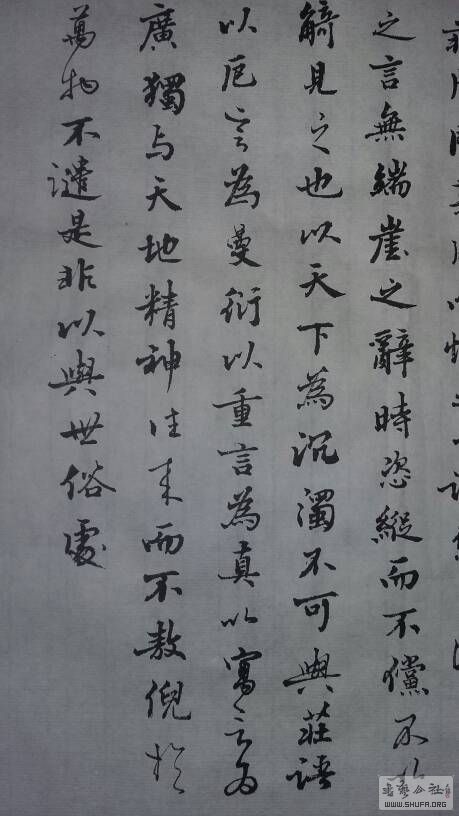 之言無端崖之辭時恣縱而不儻不以
觭見之也以天下為沉濁不可與莊語
以卮言為曼衍以重言為真以寓言為
廣獨與天地精神往来而不敖倪於
萬物不譴是非以與世俗處
書法公社
WWW.SHUFA.ORG